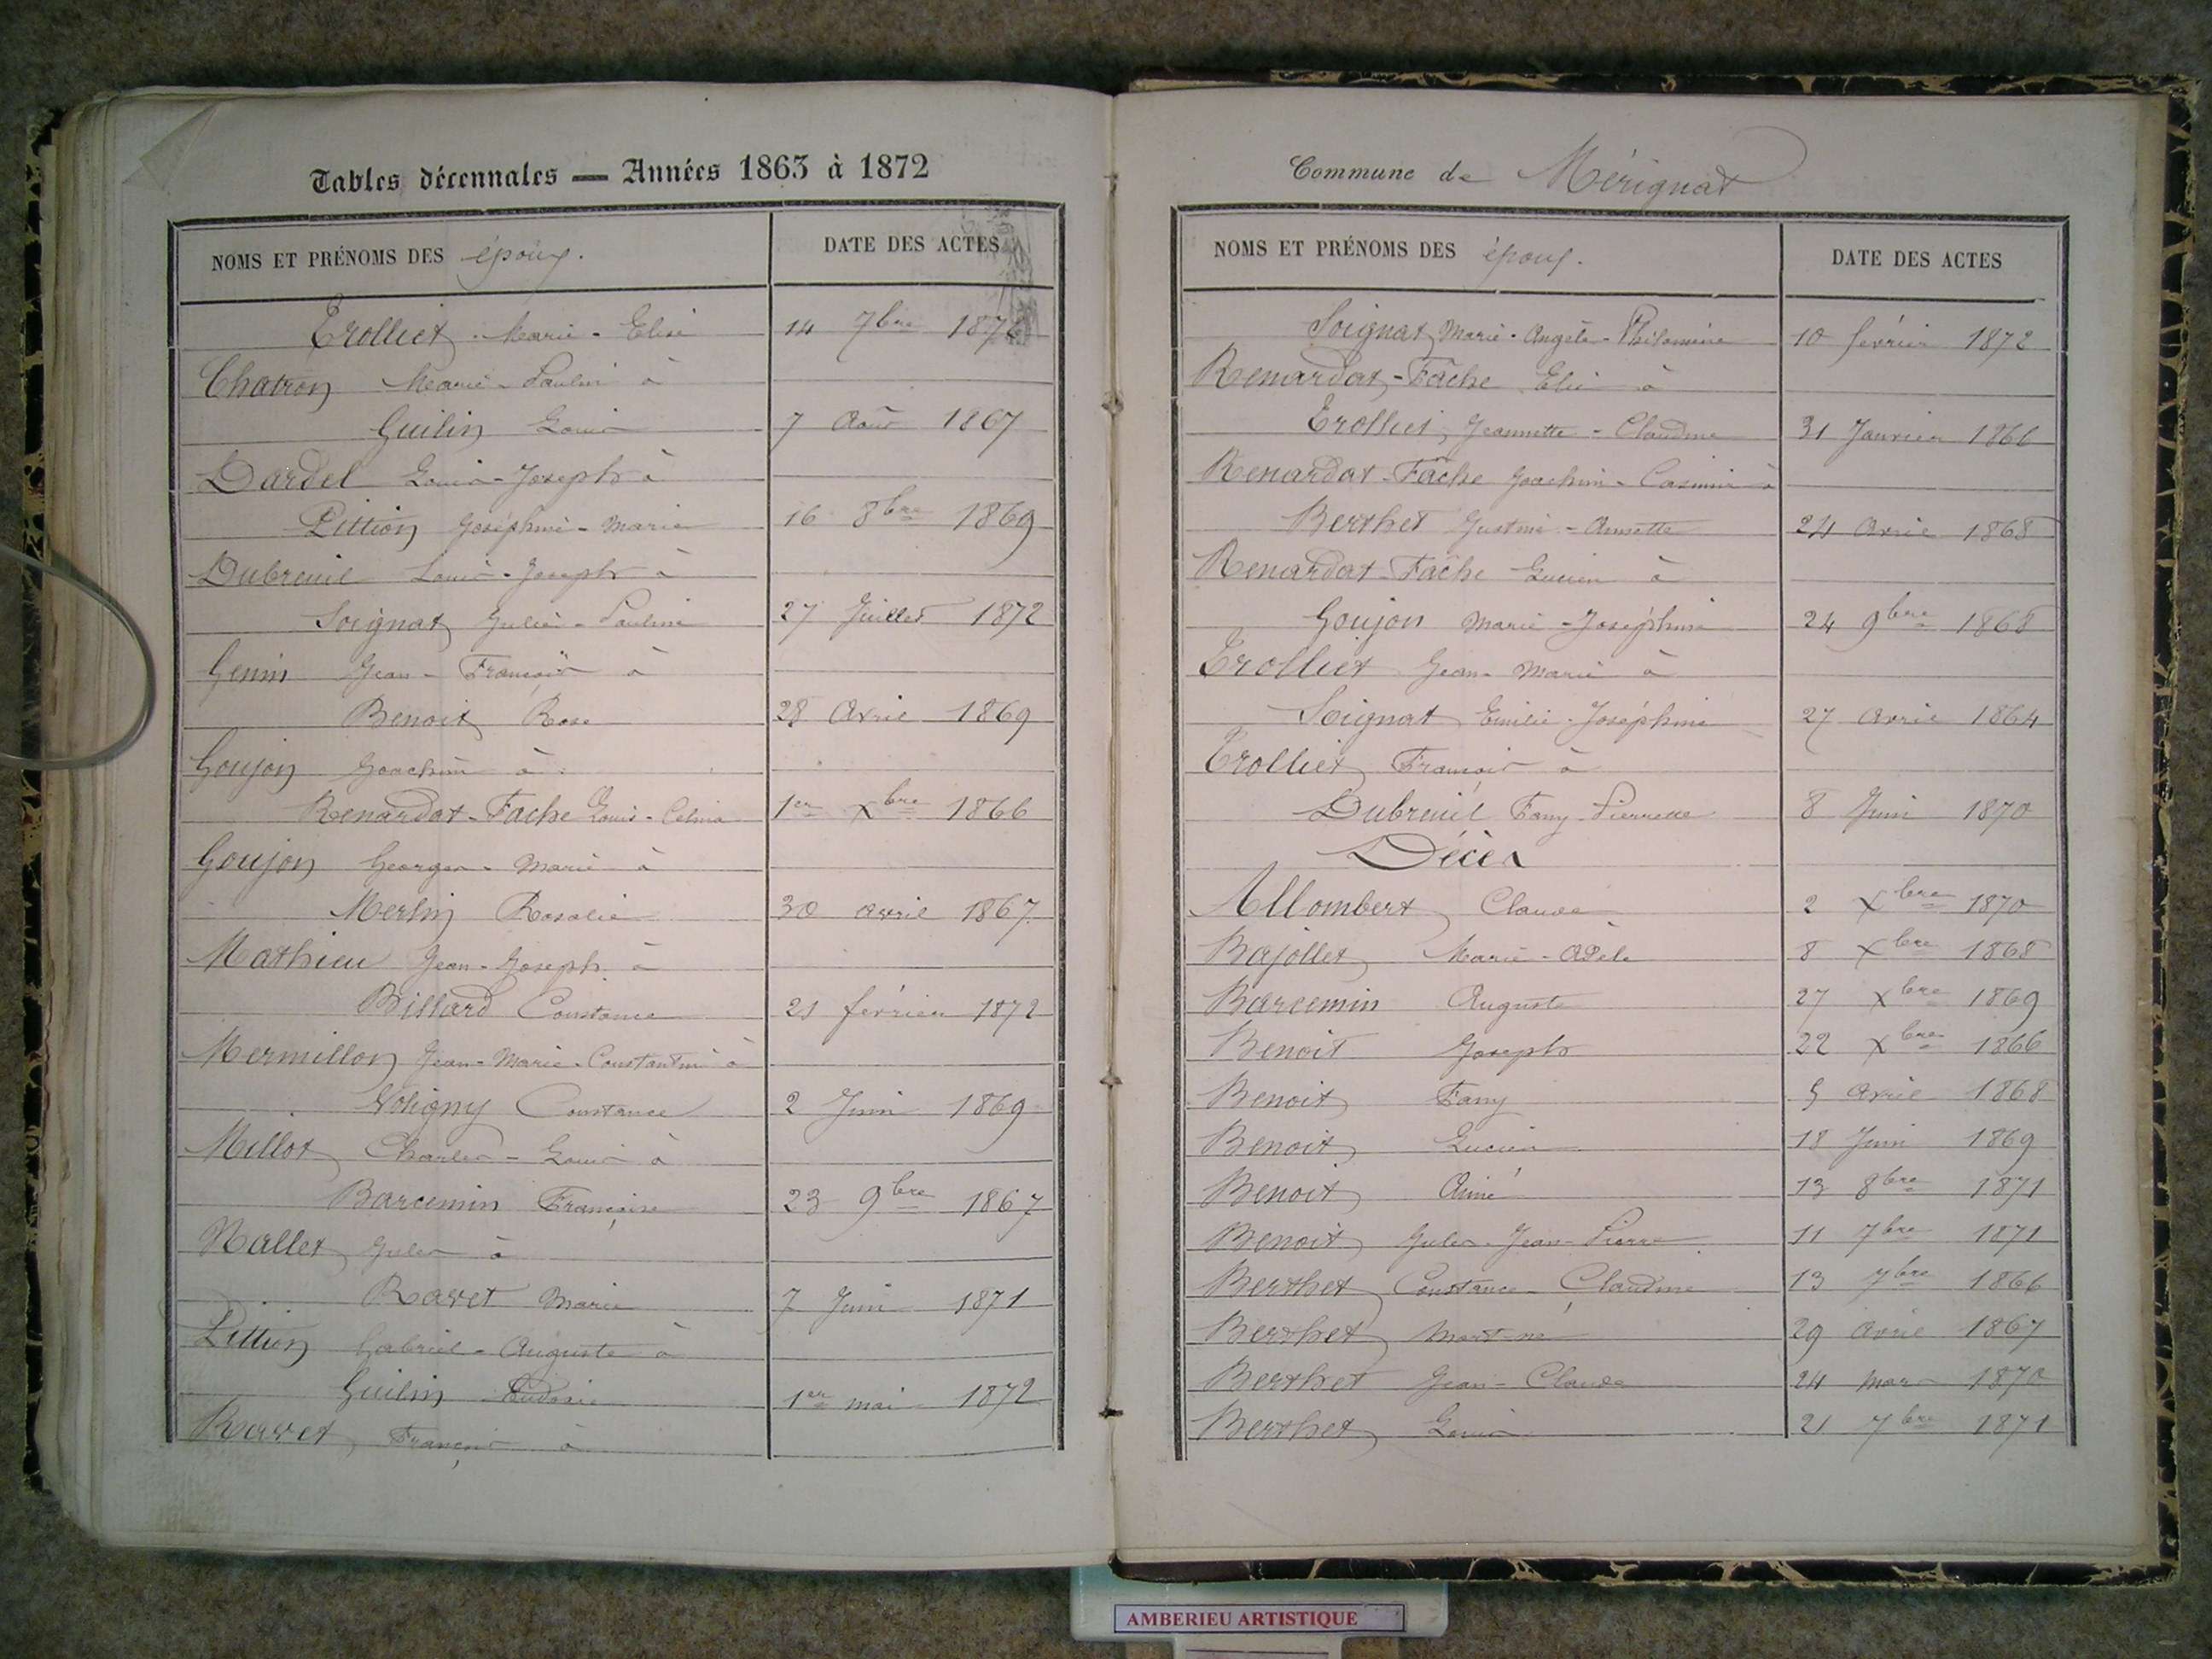 Tables décennales — Années 1863 à 1872
NOMS ET PRÉNOMS DES époux. DATE DES ACTES
Trolliet Marie-Elise 14 7bre
Chatron Marie-Paulin à
Guilin Louis 7 Août 1867
Dardel Louis-Joseph à
Pittion Joséphine-Marie 16 8bre 1869
Dubreuil Louis-Joseph à
Soignat Julie-Pauline 27 Juillet 1872
Genin Jean-François à
Benoit Rose 28 Avril 1869
Goujon Joachim à
Renardat-Fache Louis-Célina 1er Xbre 1866
Goujon Georges-Marie à
Merlin Rosalie 30 avril 1867
Mathieu Jean-Joseph à
Billard Constance 21 février 1872
Mermillon Jean-Marie-Constantin à
Constance 2 Juin 1869
Millot Charles-Louis à
Barcemin Françoise 23 9bre 1867
Nallet Jules à
Ravet Marie 7 Juin 1871
Pittion Gabriel-Auguste à
Guilin 1er mai 1872
Ravet François à
Commune de Mérignat
NOMS ET PRÉNOMS DES époux. DATE DES ACTES
Soignat Marie-Angèle-Philomène 10 février 1872
Renardat-Fâche Elie à
Trolliet Jeannette-Claudine 31 Janvier 1866
Renardat-Fâche Joachim-Casimir à
Berthet Justine-Annette 24 avril 1868
Renardat-Fâche Lucien à
Goujon Marie-Joséphine 24 9bre 1868
Trolliet Jean-Marie à
Soignat Emilie-Joséphine 27 avril 1864
Trolliet François à
Dubreuil Fany-Pierrette 8 Juin 1870
Décès
Allombert Claude 2 Xbre 1870
Bajollet Marie-Adèle 8 Xbre 1868
Barcemin Auguste 27 Xbre 1869
Benoit Joseph 22 Xbre 1866
Benoit Fany 5 avril 1868
Benoit Lucien 18 Juin 1869
Benoit Aimé 13 8bre 1871
Benoit Jules-Jean-Pierre 11 7bre 1871
Berthet Constance-Claudine 13 7bre 1866
Berthet Martine 29 avril 1867
Berthet Jean-Claude 24 mars 1870
Berthet Louis 21 7bre 1871
AMBERIEU ARTISTIQUE